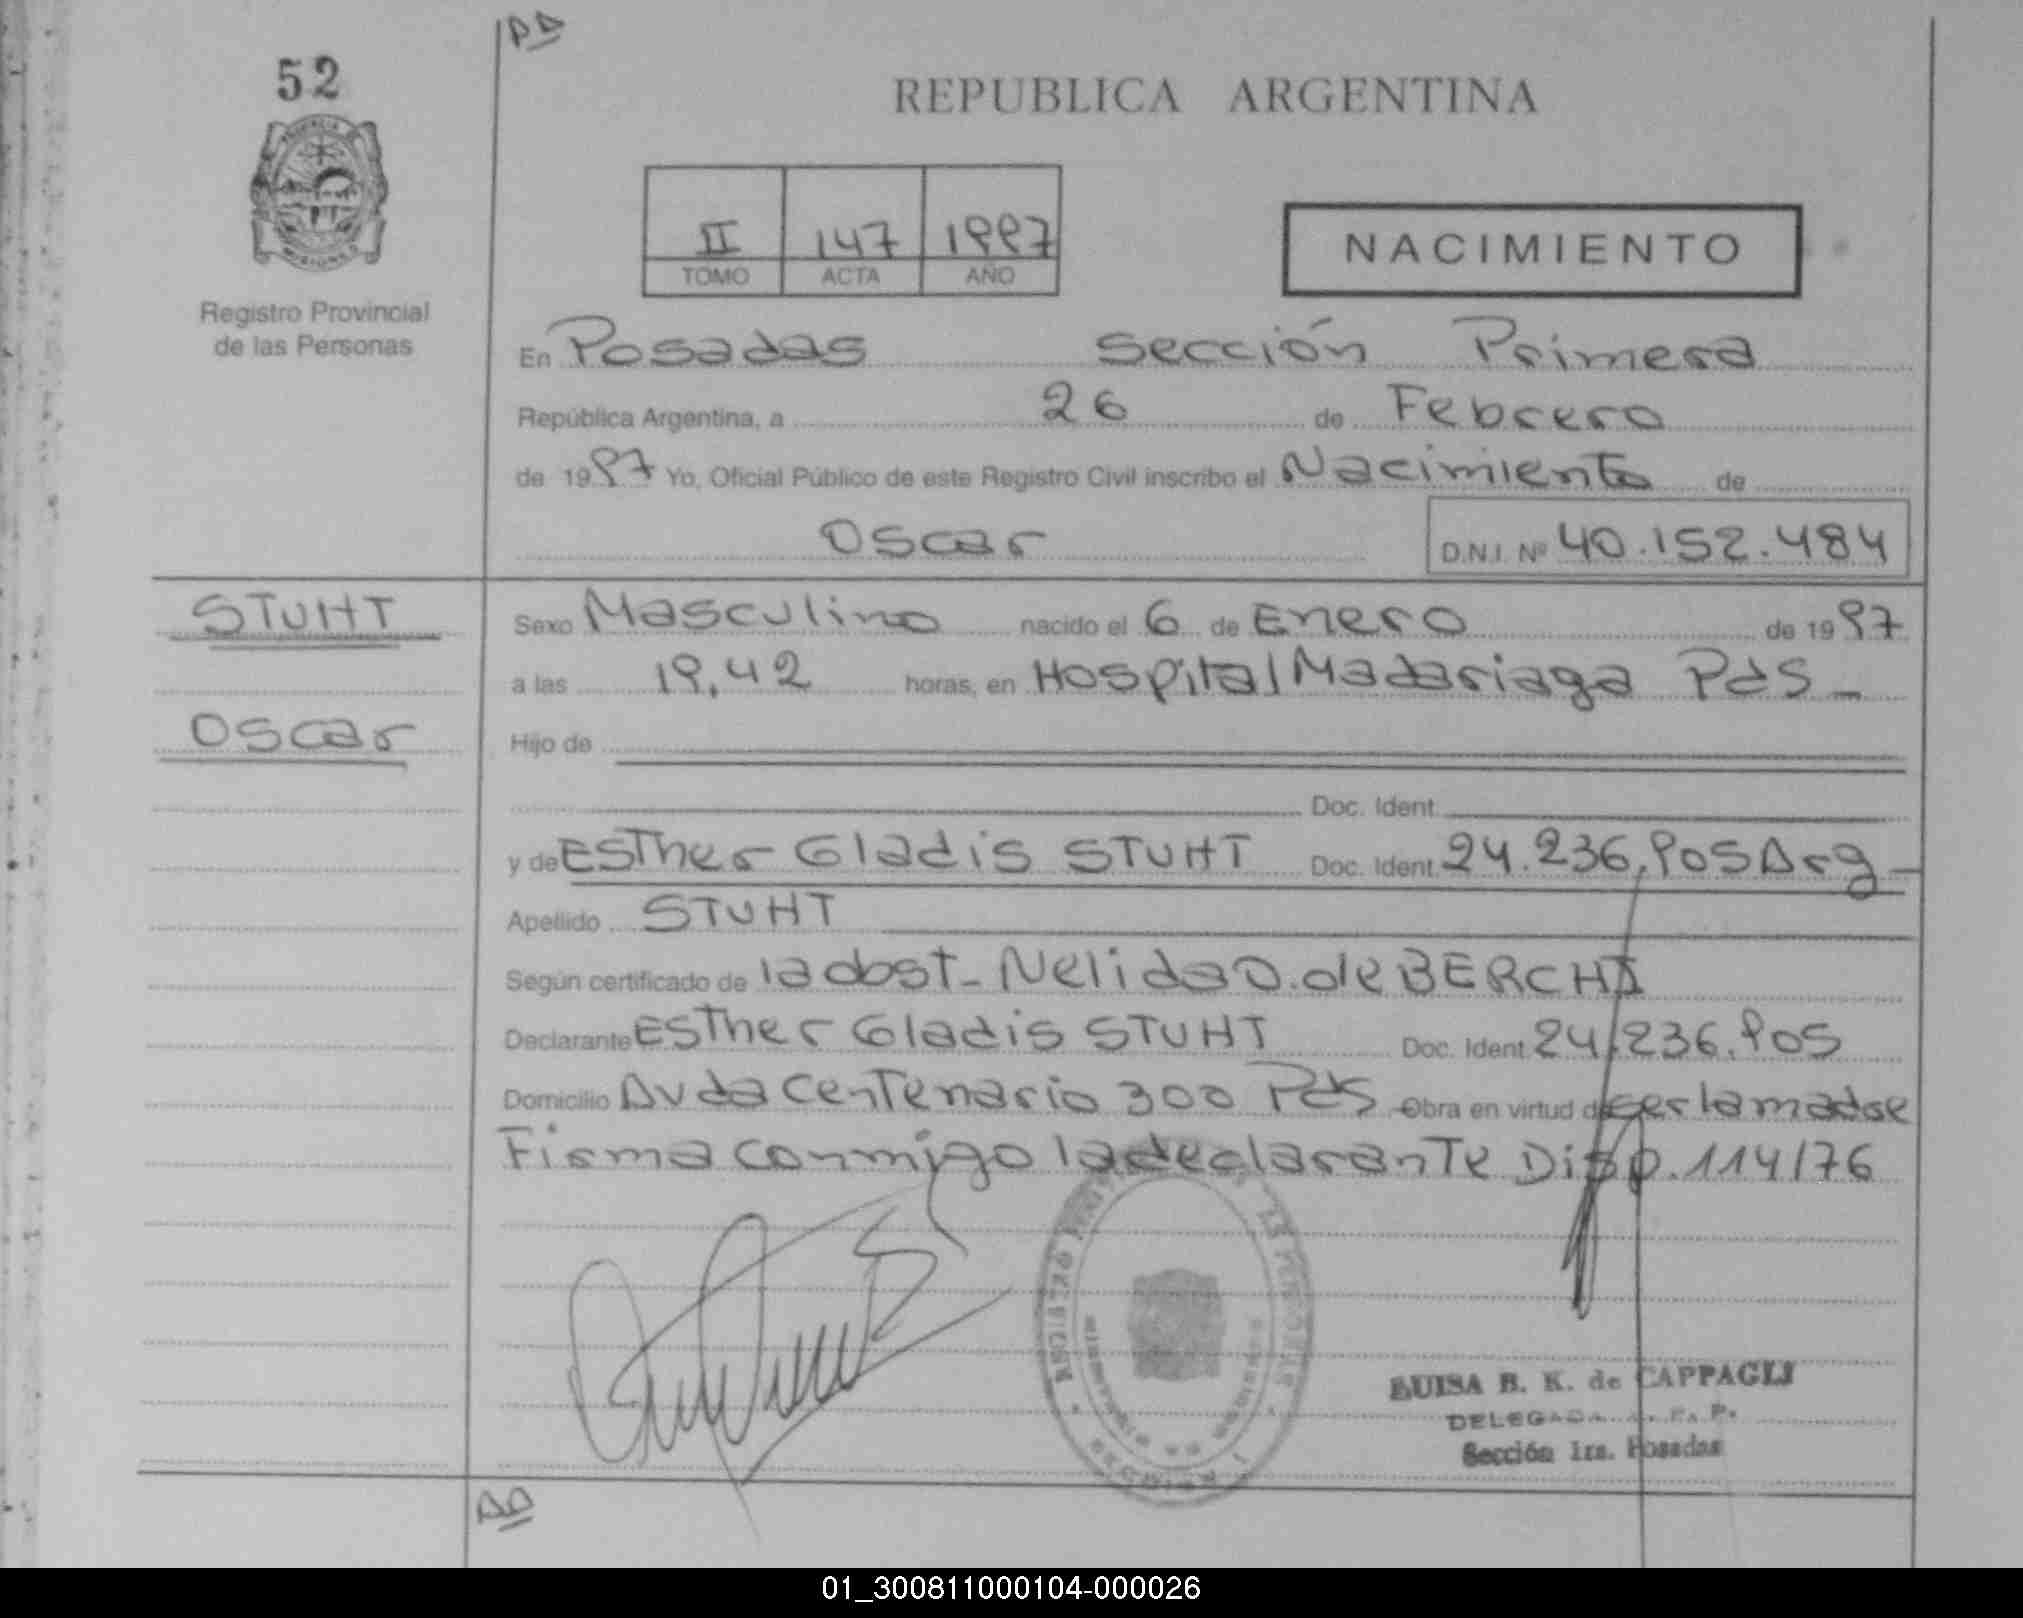 52
REPUBLICA ARGENTINA
II 147 1997
TOMO ACTA AÑO
NACIMIENTO
Registro Provincial
de las Personas
En Posadas Sección Primera
República Argentina, a 26 de Febrero
de 1997 Yo, Oficial Público de este Registro Civil inscribo el Nacimiento de
Oscar D.N.I. Nº 40.152.484
STUHT
Oscar
Sexo Masculino nacido el 6 de Enero de 1997
a las 19,42 horas, en Hospital Madariaga Pds -
Hijo de
Doc. Ident.
y de ESTher Gladis STUHT Doc. Ident. 24.236,905 Arg -
Apellido STUHT
Según certificado de la obst- Nelida O. de BERCHI
Declarante ESTher Gladis STUHT Doc. Ident. 24.236.905
Domicilio Avda CenTenario 300 Pds Obra en virtud de ser la madre
Firma conmigo la declaranTe Disp. 114/76
LUISA B. K. de CAPPAGLI
DELEGADA R. P.
Sección 1ra. Posadas
01_300811000104-000026